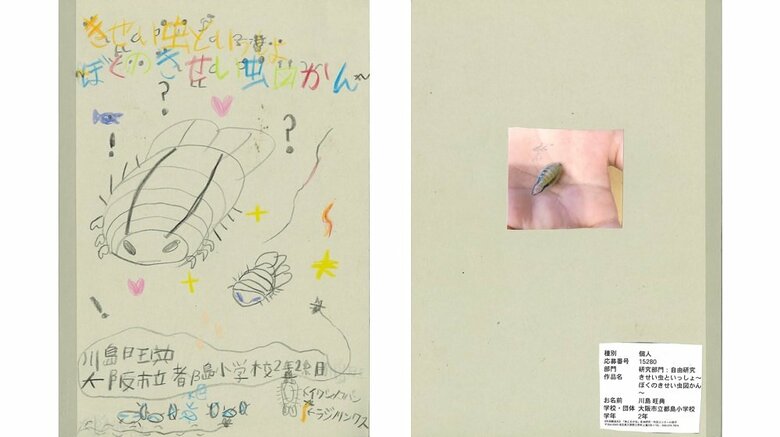 きせい虫といっしょ
~ぼくのきせい虫図かん~
?
!
?
!
川島旺典
大阪市立都島小学校2年2組
種別 個人
応募番号 15280
部門 研究部門：自由研究
作品名 きせい虫といっしょ～
ぼくのきせい虫図かん
～
お名前 川島 旺典
学校・団体 大阪市立都島小学校
学年 2年